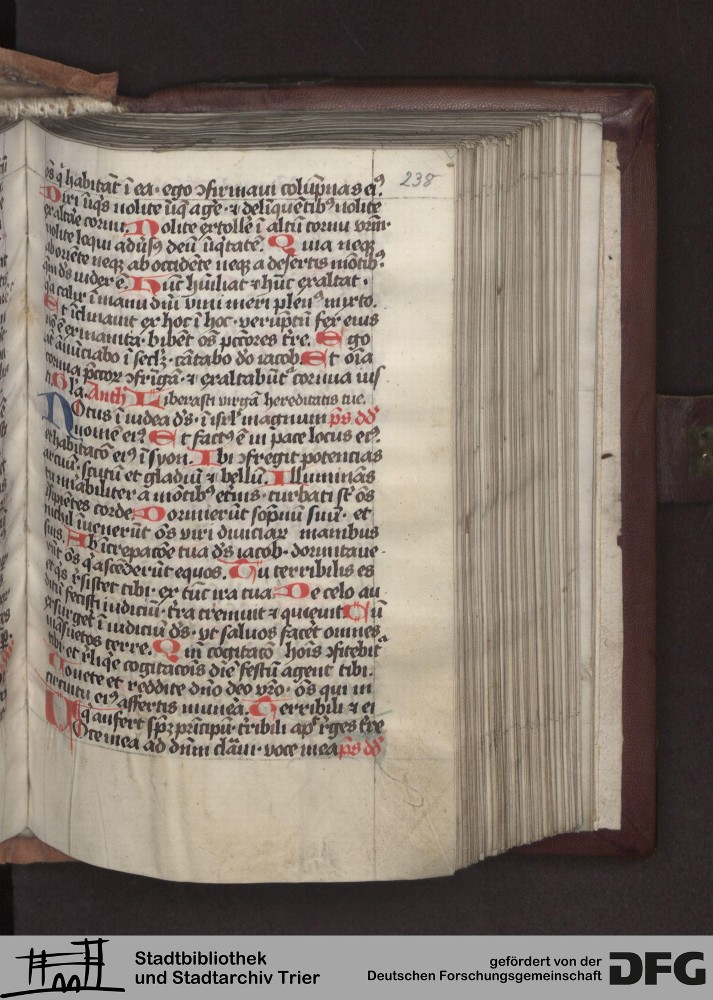 238
os q̇ habitāt ī ea · ego ɔfirmaui colūpnas eiꝰ
Dixi īiq̇s nolite īiq̄ agē · ⁊ delīquētibꝰ nolite
exaltāe cornu. Nolite extollē ī altū cornu vrm̄·
nolite loqui adūsꝰ deū īiq̄tatē. Quia neqꝫ
ab oriēte neqꝫ ab occidēte neqꝫ a desertis mōtibꝰ·
qm̄ ds̄ iudex ē. Hūc hūiliat ⁊ hūc exaltat ·
q̇a calix ī manu dn̄i vini meri plenꝰ mixto.
Et īclinauit ex hoc ī hoc · verūptn̄ fex eius
nō ē exinanita · bibēt os̄ pctōres tr̄e. Ego
at̄ ānūciabo ī seclꝫ · cātabo do iacob. Et oīa
cornua pctōꝝ ɔfrīgā · ⁊ exaltabūt̄ cornua ius
ti. Gl̄a. Anth Liberasti virgā hereditatis tue.
Notus ī iudea ds̄ · ī isrl̄ magnum ps̄ dd̄
nomē eiꝰ Et factꝰ ē in pace locus eiꝰ
et habitatō eiꝰ ī syon. Ibi ɔfregit potencias
arcuū · scutū et gladiū ⁊ bellū. Illuminās
tu mirabiliter a mōtibꝰ et̄nis · turbati st̄ os̄
īsipiētes corde. Dormierūt sopnū suū · et
nichil īuenerūt os̄ viri diuiciaꝝ manibus
suis. Ab īcrepacōe tua ds̄ iacob · dormitaue-
rūt os̄ q̇ ascēderūt equos. Tu terribilis es
et q̇s r̄sistet tibi · ex tūc ira tua. De celo au
ditū fecisti iudiciū · tr̄a tremuit ⁊ quieuit Cū
exsurget ī iudiciū ds̄ · vt saluos facēt omnes
māsuetos terre. Qm̄ cogitatō hoīs ɔfitebit̄
tibi · et rl̄iqe cogitacōis diē festū agent tibi.
Vouete et reddite dn̄o deo vr̄o · os̄ qui in
circuitu eiꝰ affertis munēa. Terribili ⁊ ei
q̇ aufert spm̄ prīcipū · tr̄ribili apᵈ r̄ges tr̄e
Voce mea ad dn̄m clāui · voce mea ps̄ dd̄
Stadtbibliothek
und Stadtarchiv Trier
gefördert von der
Deutschen Forschungsgemeinschaft
DFG